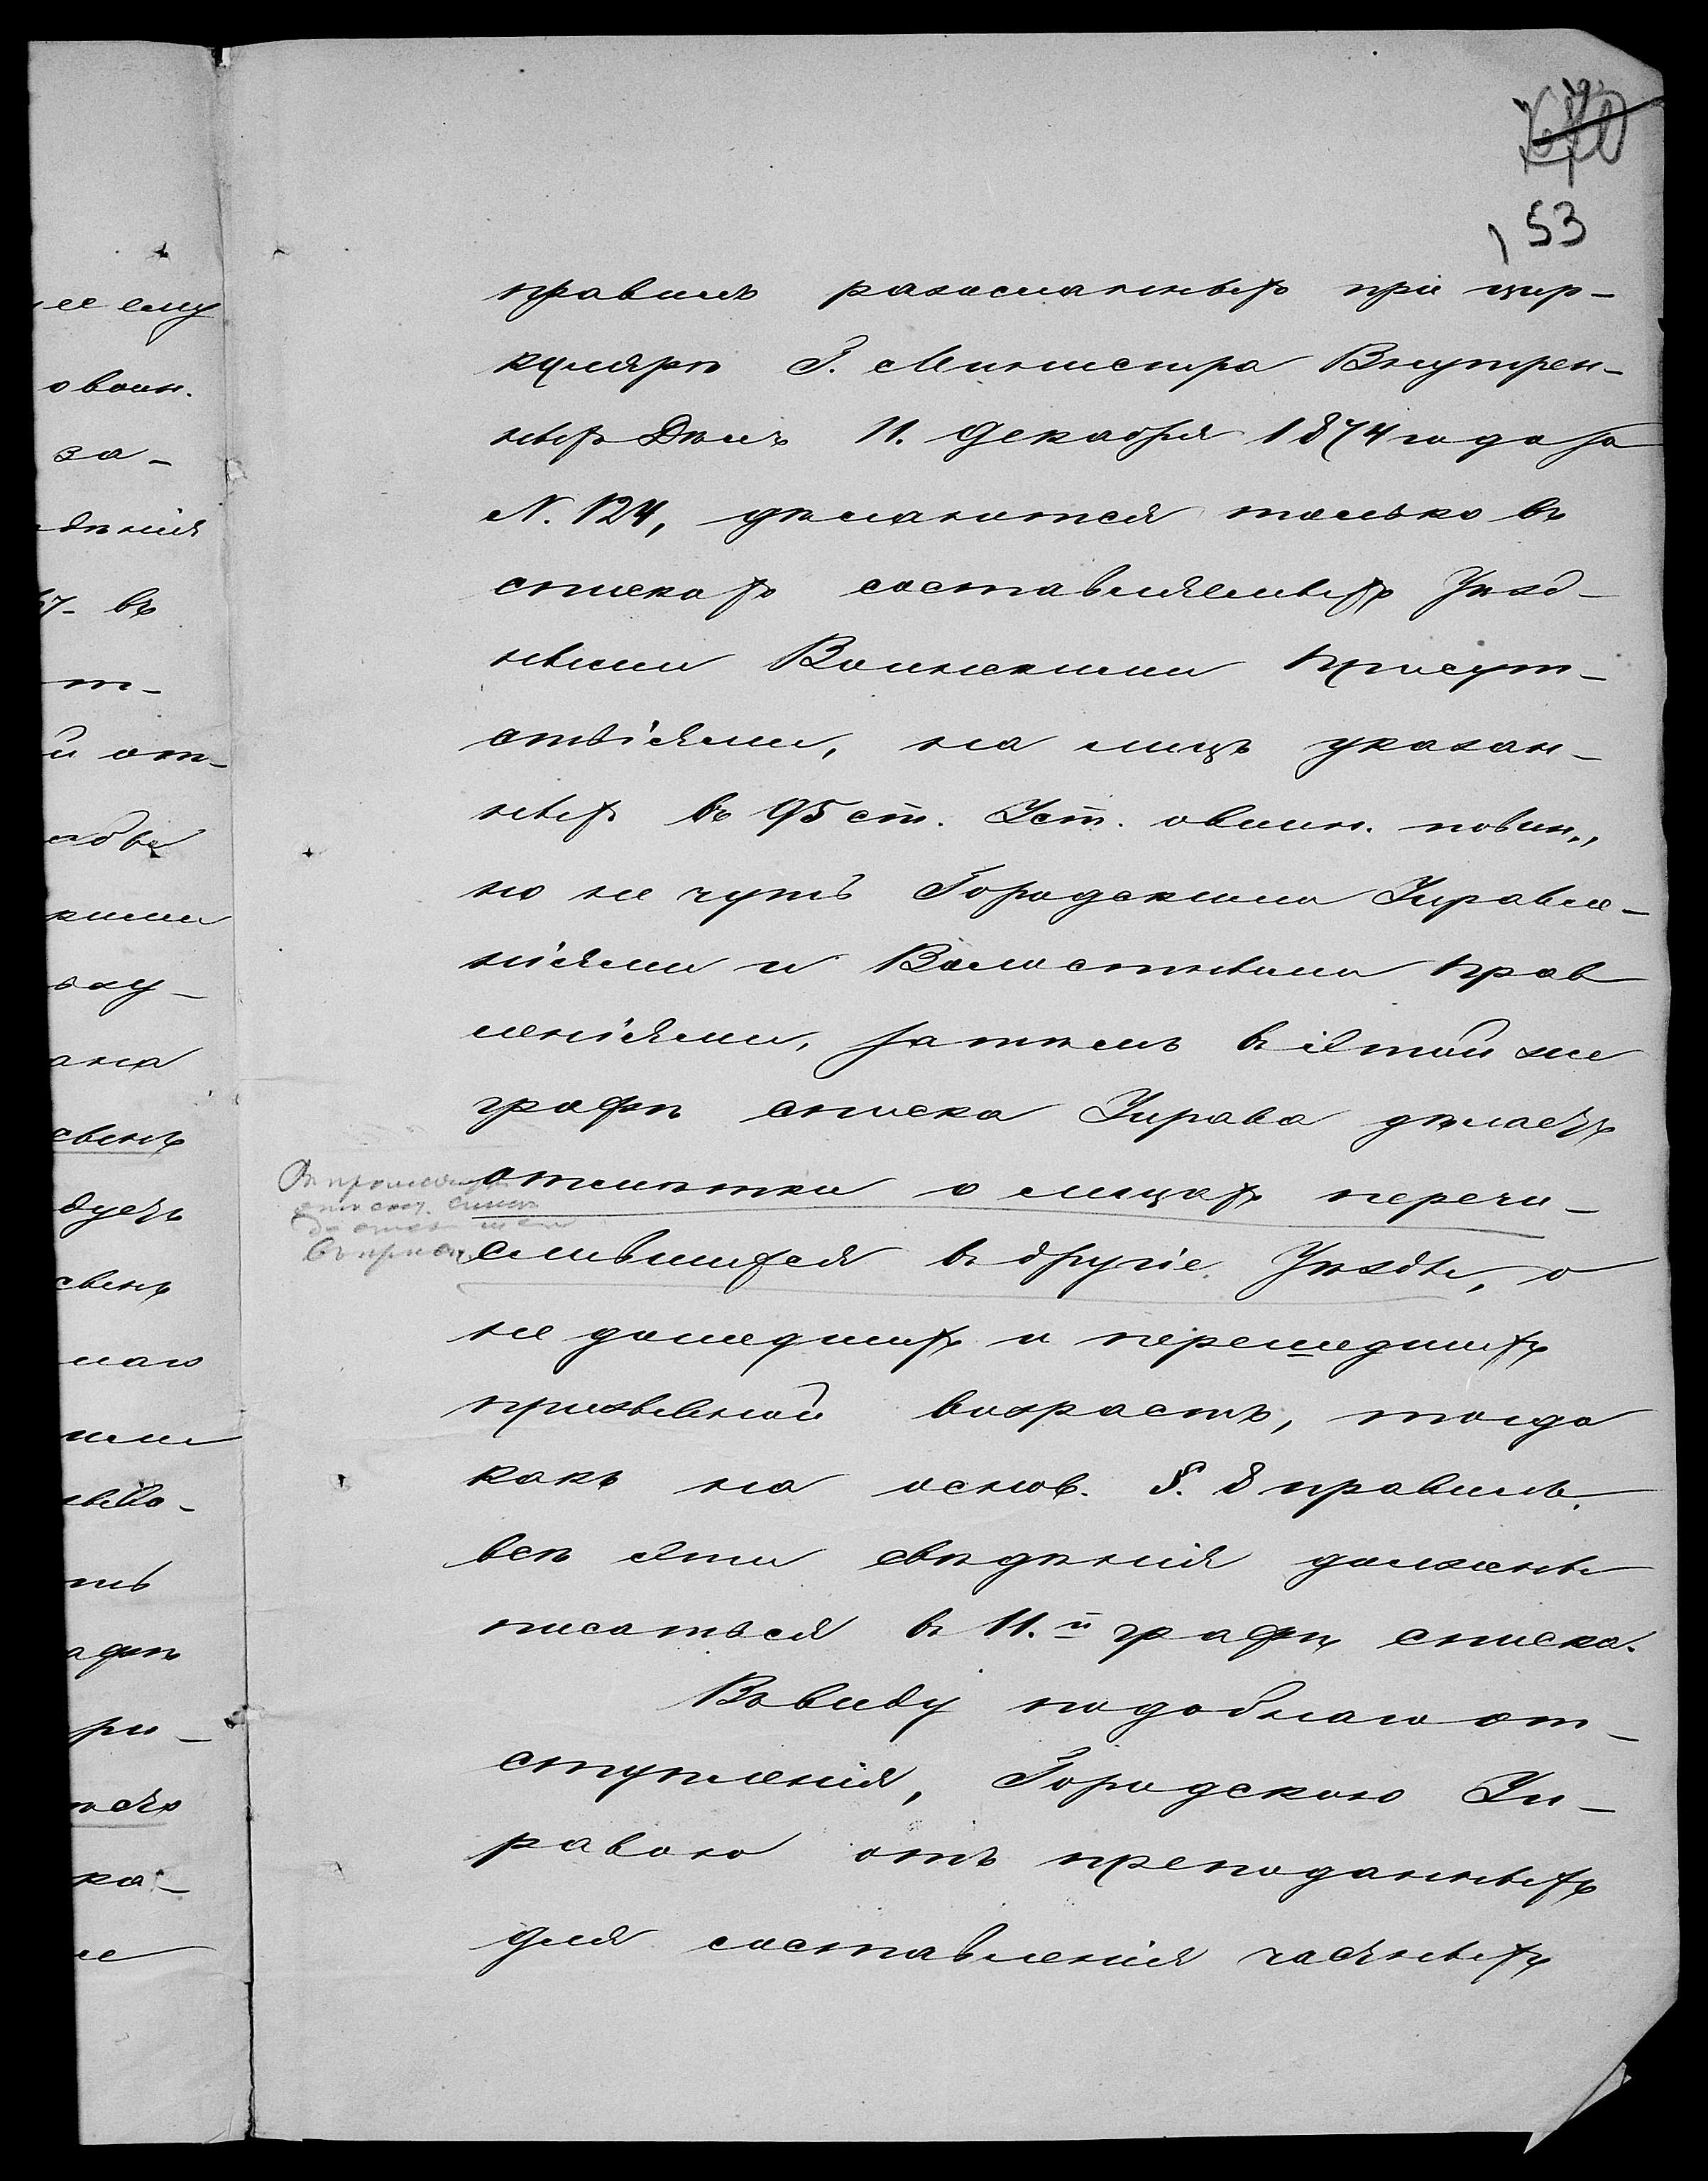 53
правилъ разосланныхъ при цир-
кулярѣ Г. Министра Внутрен-
ныхъ Дѣлъ 11. Декабря 1874 года за
N. 124, дѣлаются только въ
спискахъ составляемыхъ Уѣзд-
ными Воинскими Присут-
ствіями, на лицъ указан-
ныхъ въ 95 ст. Уст. о воин. повин.,
но не чуть Городскими Управле-
ніями и Волостными Прав
леніями, затѣмъ въ этой же
графѣ списка Управа дѣлаетъ
отмѣтки о лицахъ перечи-
слившихся въ другіе Уѣзды, о
не дошедшихъ и перешедшихъ
призывной возрастъ, тогда
какъ на основ. §. 8 правилъ
всѣ эти свѣдѣнія должны
писаться въ 11.й графѣ списка.
Въ виду подобнаго от-
ступленія, Городскою Уп-
равою отъ преподанныхъ
для составленія частныхъ
ее ему
о воин.
за-
дѣнія
въ
т-
й от-
кими
ану
свен
дуетъ
свен
наго
ри-
ка-